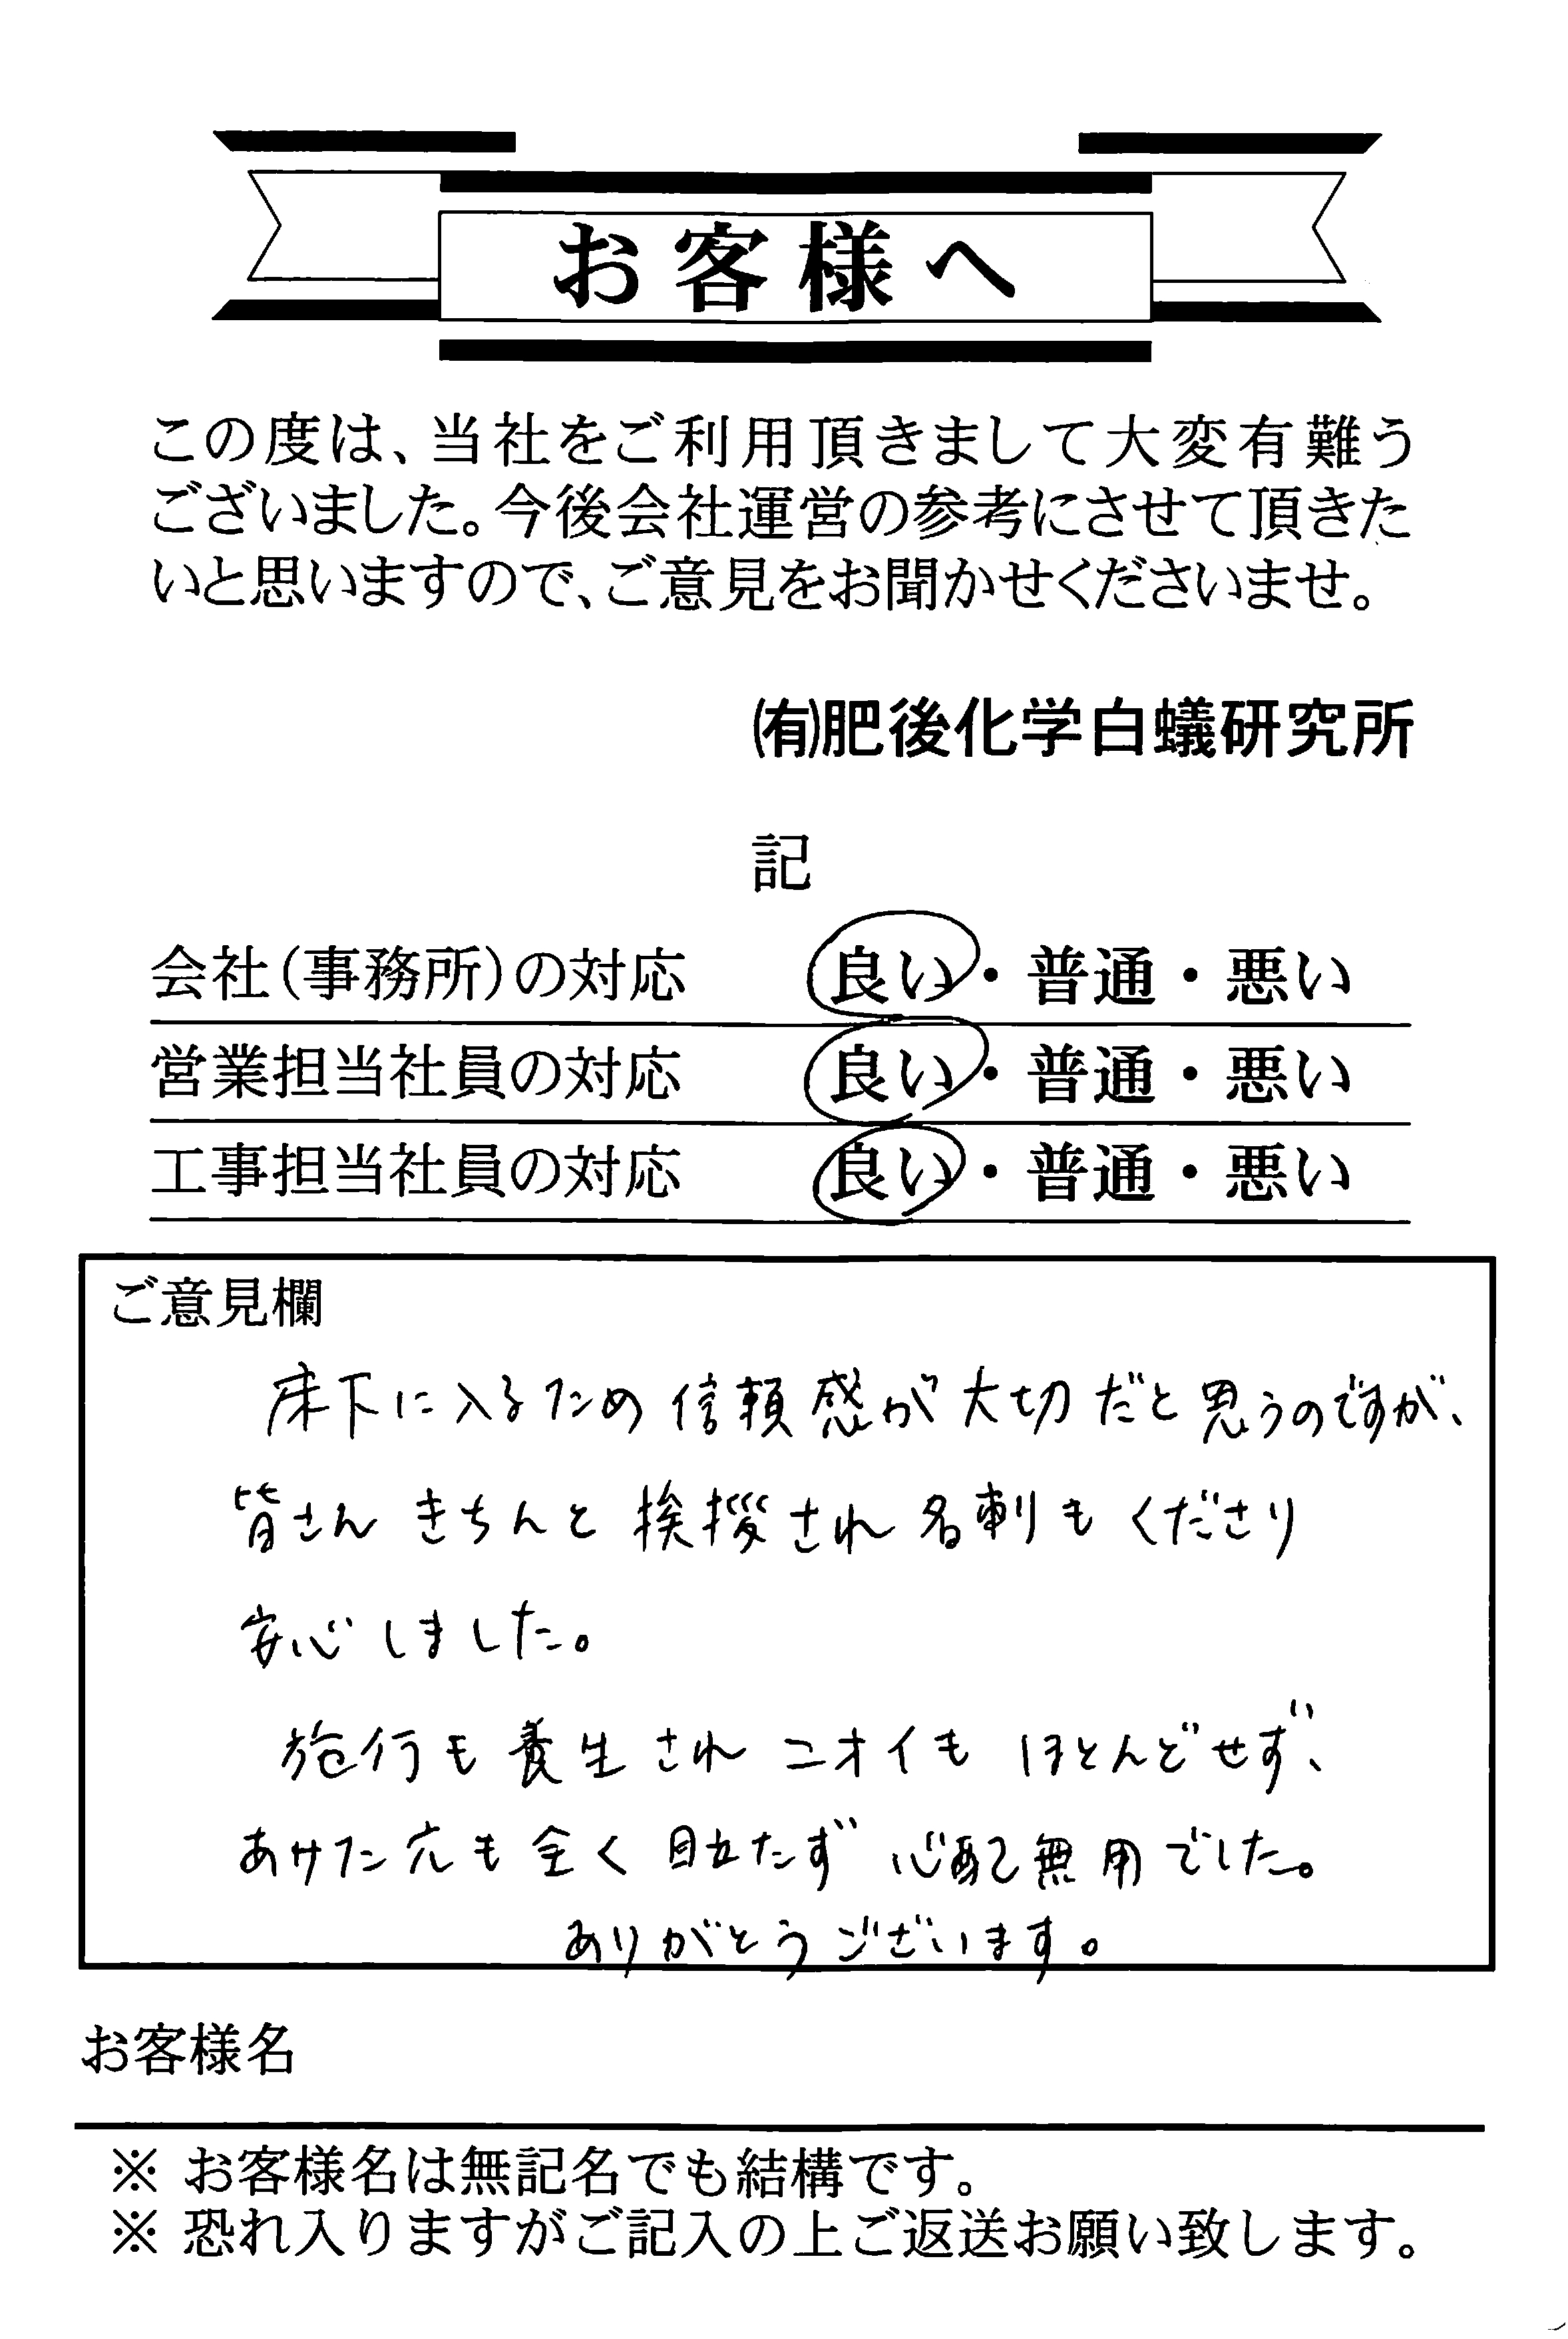 お客様へ
この度は、当社をご利用頂きまして大変有難う
ございました。今後会社運営の参考にさせて頂きた
いと思いますので、ご意見をお聞かせくださいませ。
㈲肥後化学白蟻研究所
記
会社（事務所）の対応 良い・普通・悪い
営業担当社員の対応 良い・普通・悪い
工事担当社員の対応 良い・普通・悪い
ご意見欄
床下に入るため信頼感が大切だと思うのですが、
皆さんきちんと挨拶され名刺もくださり
安心しました。
施行も養生されニオイもほとんどせず、
あけた穴も全く目立たず心配無用でした。
ありがとうございます。
お客様名
※ お客様名は無記名でも結構です。
※ 恐れ入りますがご記入の上ご返送お願い致します。